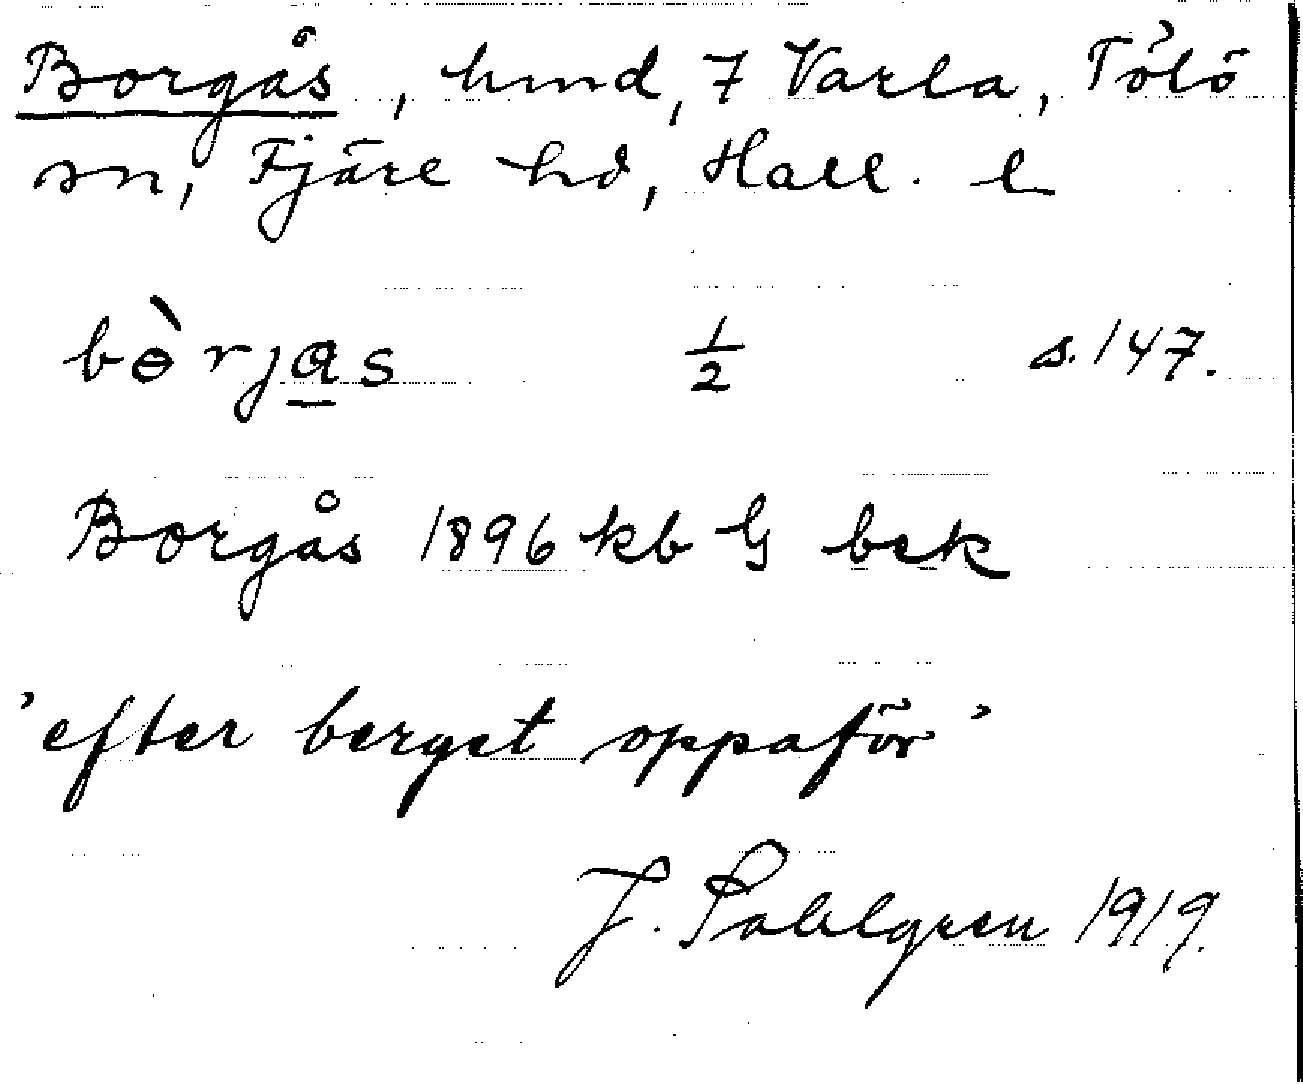 Borgås, hmd, 7 Varla, Tölö
sn, Fjäre hd, Hall. l
bɵ̀rjas 1/2 s. 147.
Borgås 1896 kb G bek
'efter berget oppaför'
J. Sahlgren 1919.